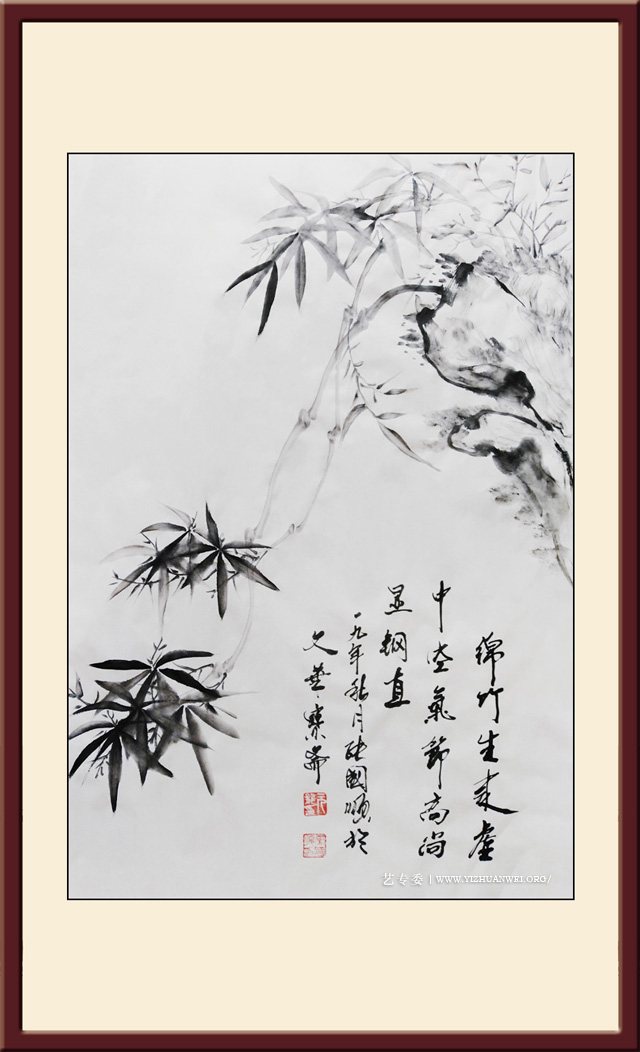 绵竹生来虚
中空氣節高尚
显钢直
一九年秋月 國順於
文華
艺专委 | WWW.YIZHUANWEI.ORG/